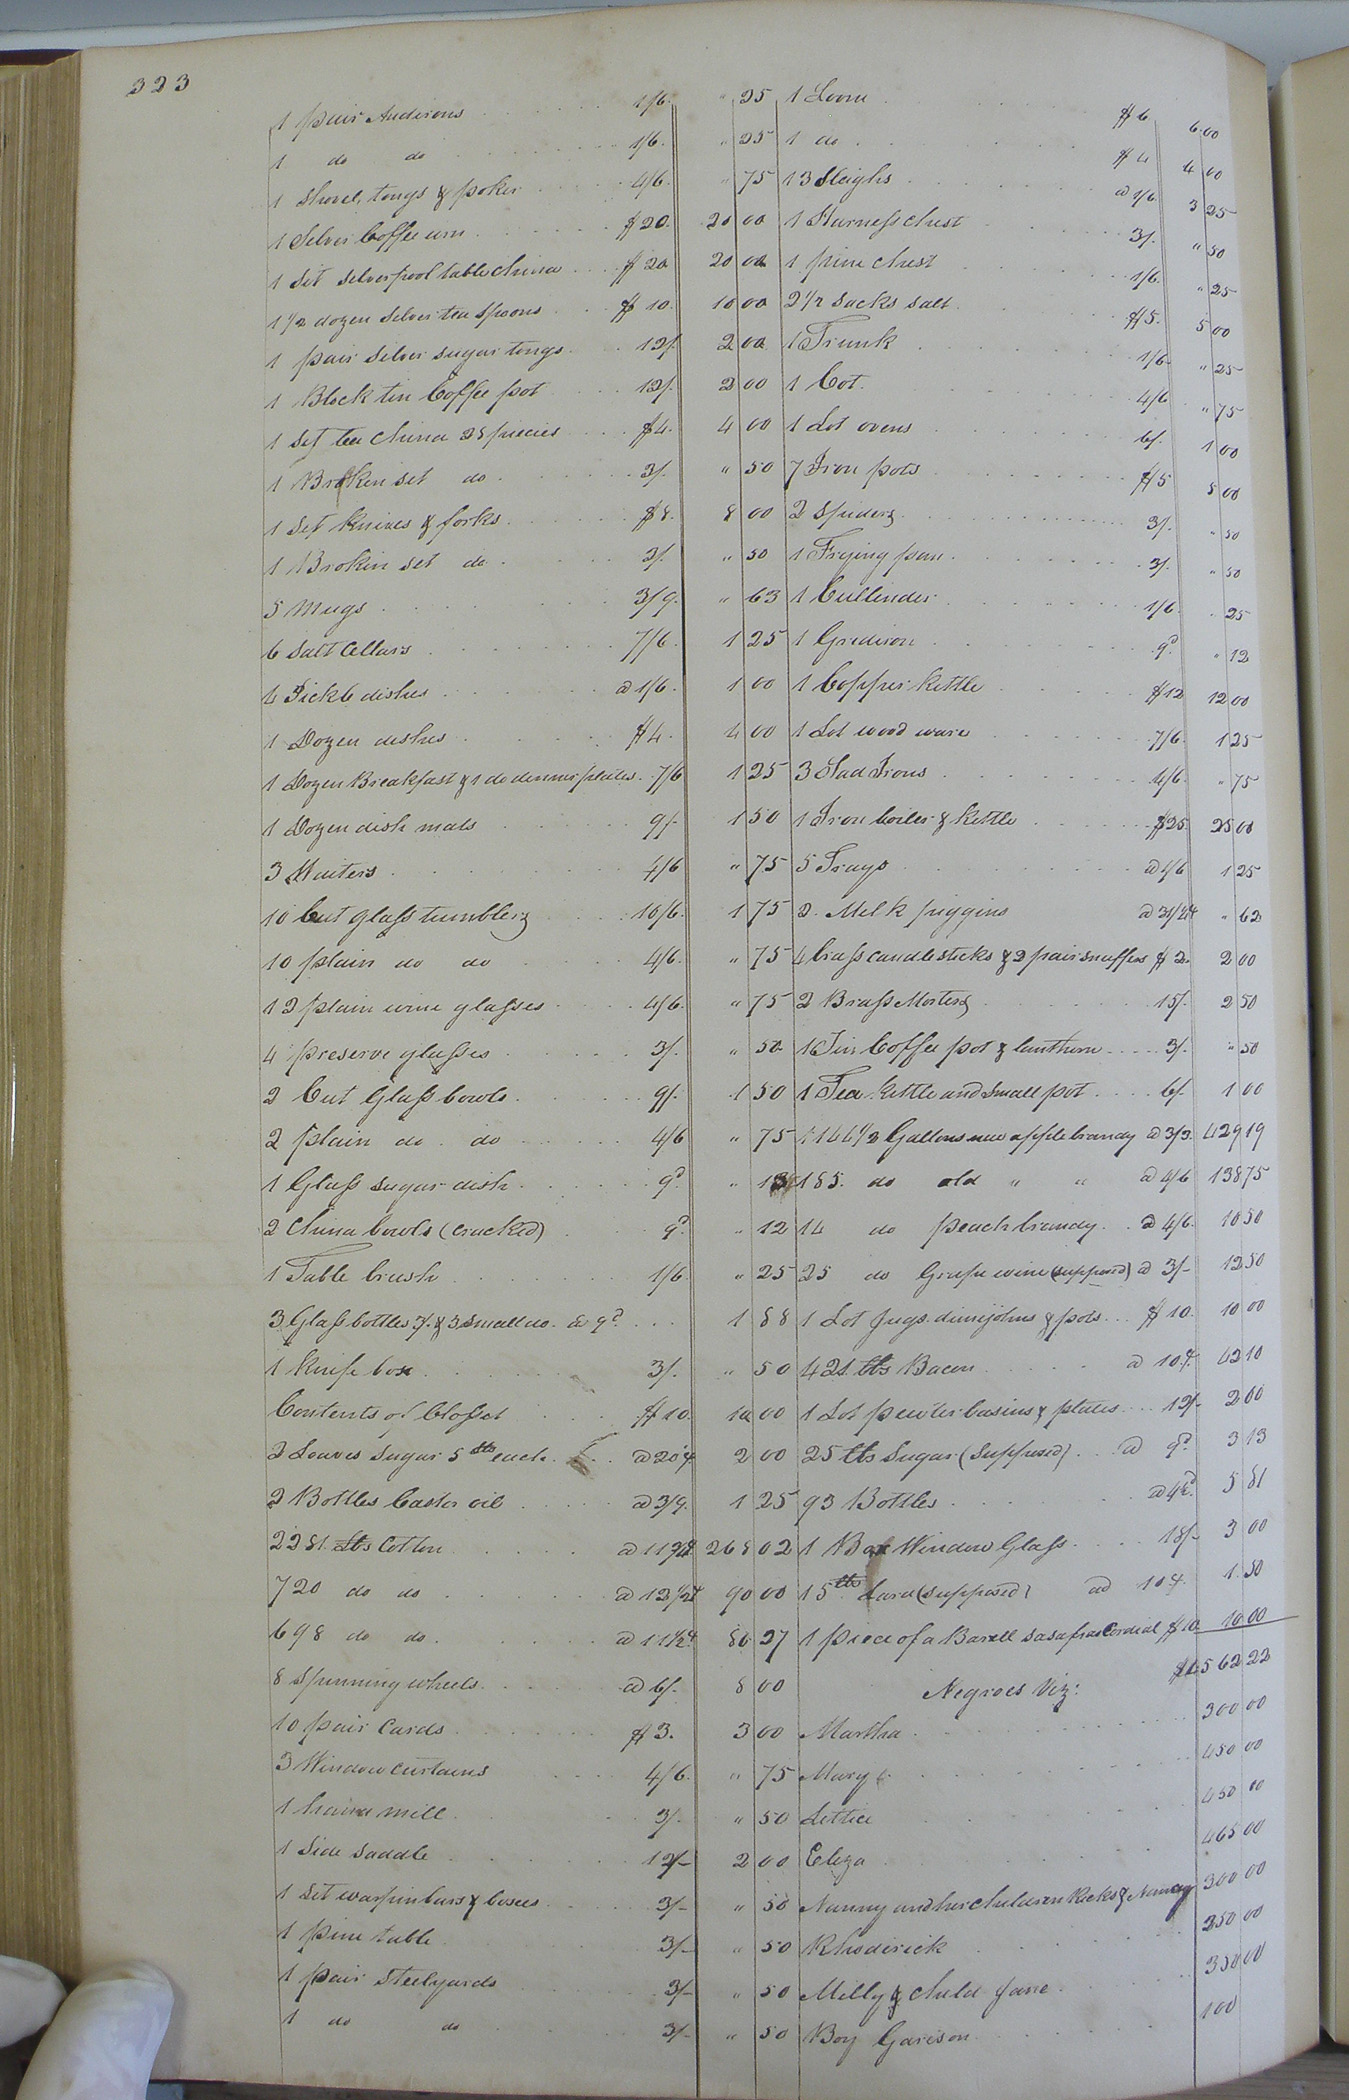 323
1 pair Andirons 1/6 " 25
1 do do 1/6. " 25
1 Shovel, tongs & poker 4/6. " 75
1 Silver Coffee urn $20. 20 00
1 Set Liverpool table china $20 20 00
1 1/2 dozen Silver tea spoons $10. 10 00
1 pair Silver sugar tongs 12/. 2 00
1 Block tin Coffee pot 12/. 2 00
1 Set tea China 25 pieces $4. 4 00
1 Broken set do 3/. " 50
1 Set Knives & forks $8. 8 00
1 Broken Set do 3/. " 50
5 Mugs 3/9. " 63
6 Salt Cellars 7/6. 1 25
4 Pickle dishes @ 1/6. 1 00
1 Dozen dishes $4. 4 00
1 Dozen Breakfast & 1 do dinner plates. 7/6 1 25
1 Dozen dish mats 9/. 1 50
3 Waiters 4/6 " 75
10 Cut glass tumblers 10/6. 1 75
10 plain do do 4/6. " 75
12 plain wine glasses 4/6. " 75
4 preserve glasses 3/. " 50
2 Cut Glass bowls 9/. 1 50
2 plain do. do 4/6 " 75
1 Glass sugar dish 9d. " 13
2 China bowls (cracked) 9d. " 12
1 Table brush 1/6. " 25
3 Glass bottles & 3 small do. @ 9d. 1 88
1 Knife box 3/. " 50
Contents of Closset $10. 10 00
2 Loaves Sugar 5 lbs each @ 20 2 00
2 Bottles Castor oil @ 3/9. 1 25
2281 lbs Cotton @ 11 3/4 268 02
720 do do @ 12 1/2 90 00
698 do do. @ 11 1/2 80 27
8 Spinning wheels @ 6/. 8 00
10 pair Cards $3. 3 00
3 Window curtains 4/6. " 75
1 mill 3/. " 50
1 Side Saddle 12/- 2 00
1 Set warpinbars & boxes 3/- " 50
1 Pine table 3/- " 50
1 pair Steelyards 3/- " 50
1 do do 3/- " 50
1 Loom $6 6 00
1 do $4 4 00
13 Sleighs @ 1/6 3 25
1 Harness Chest 3/. " 50
1 pine Chest 1/6. " 25
2 1/2 Sacks Salt $5. 5 00
1 Trunk 1/6 " 25
1 Cot. 4/6 " 75
1 Lot ovens 6/. 1 00
7 Iron pots $5 5 00
2 Spiders 3/. " 50
1 Frying pan 3/. " 50
1 Cullinder 1/6 " 25
1 Gridiron 9d. " 12
1 Copper Kettle $12 12 00
1 Lot wood ware 7/6. 1 25
3 Sad Irons 4/6. " 75
1 Iron boiler & Kettle $25 25 00
5 Trays @ 1/6 1 25
2. Milk piggins " 62
4 brass candlesticks & 2 pair snuffers $2. 2 00
2 Brass Morters 15/. 2 50
1 Tin Coffee pot & lanthorn 3/. " 50
1 Tea Kettle and Small pot 6/. 1 00
1144 1/2 Gallons new apple brandy @ 2/3. 429 19
185. do old " " @ 4/6 138 75
14 do Peach brandy @ 4/6. 10 50
25 do Grape wine (supposed) @ 3/- 12 50
1 Lot Jugs dimijohns & pots $10. 10 00
421 lbs Bacon @ 10 42 10
1 Lot pewter basins & plates 12/- 2 00
25 lbs Sugar (Supposed) @ 9d. 3 13
93 Bottles 5 81
1 Box Window Glass 18/- 3 00
15 lbs Lard (supposed) @ 10 1.50
1 piece of a Barell Sasafras Cordial $10 10 00
$4562 22
Negroes Viz:
Martha 300 00
Mary 450 00
Lettice 450 00
Eliza 465 00
Nanny and her children & Nancy 300 00
Rhoderick 250 00
Milly & child Jane 350 00
Boy Garison 100